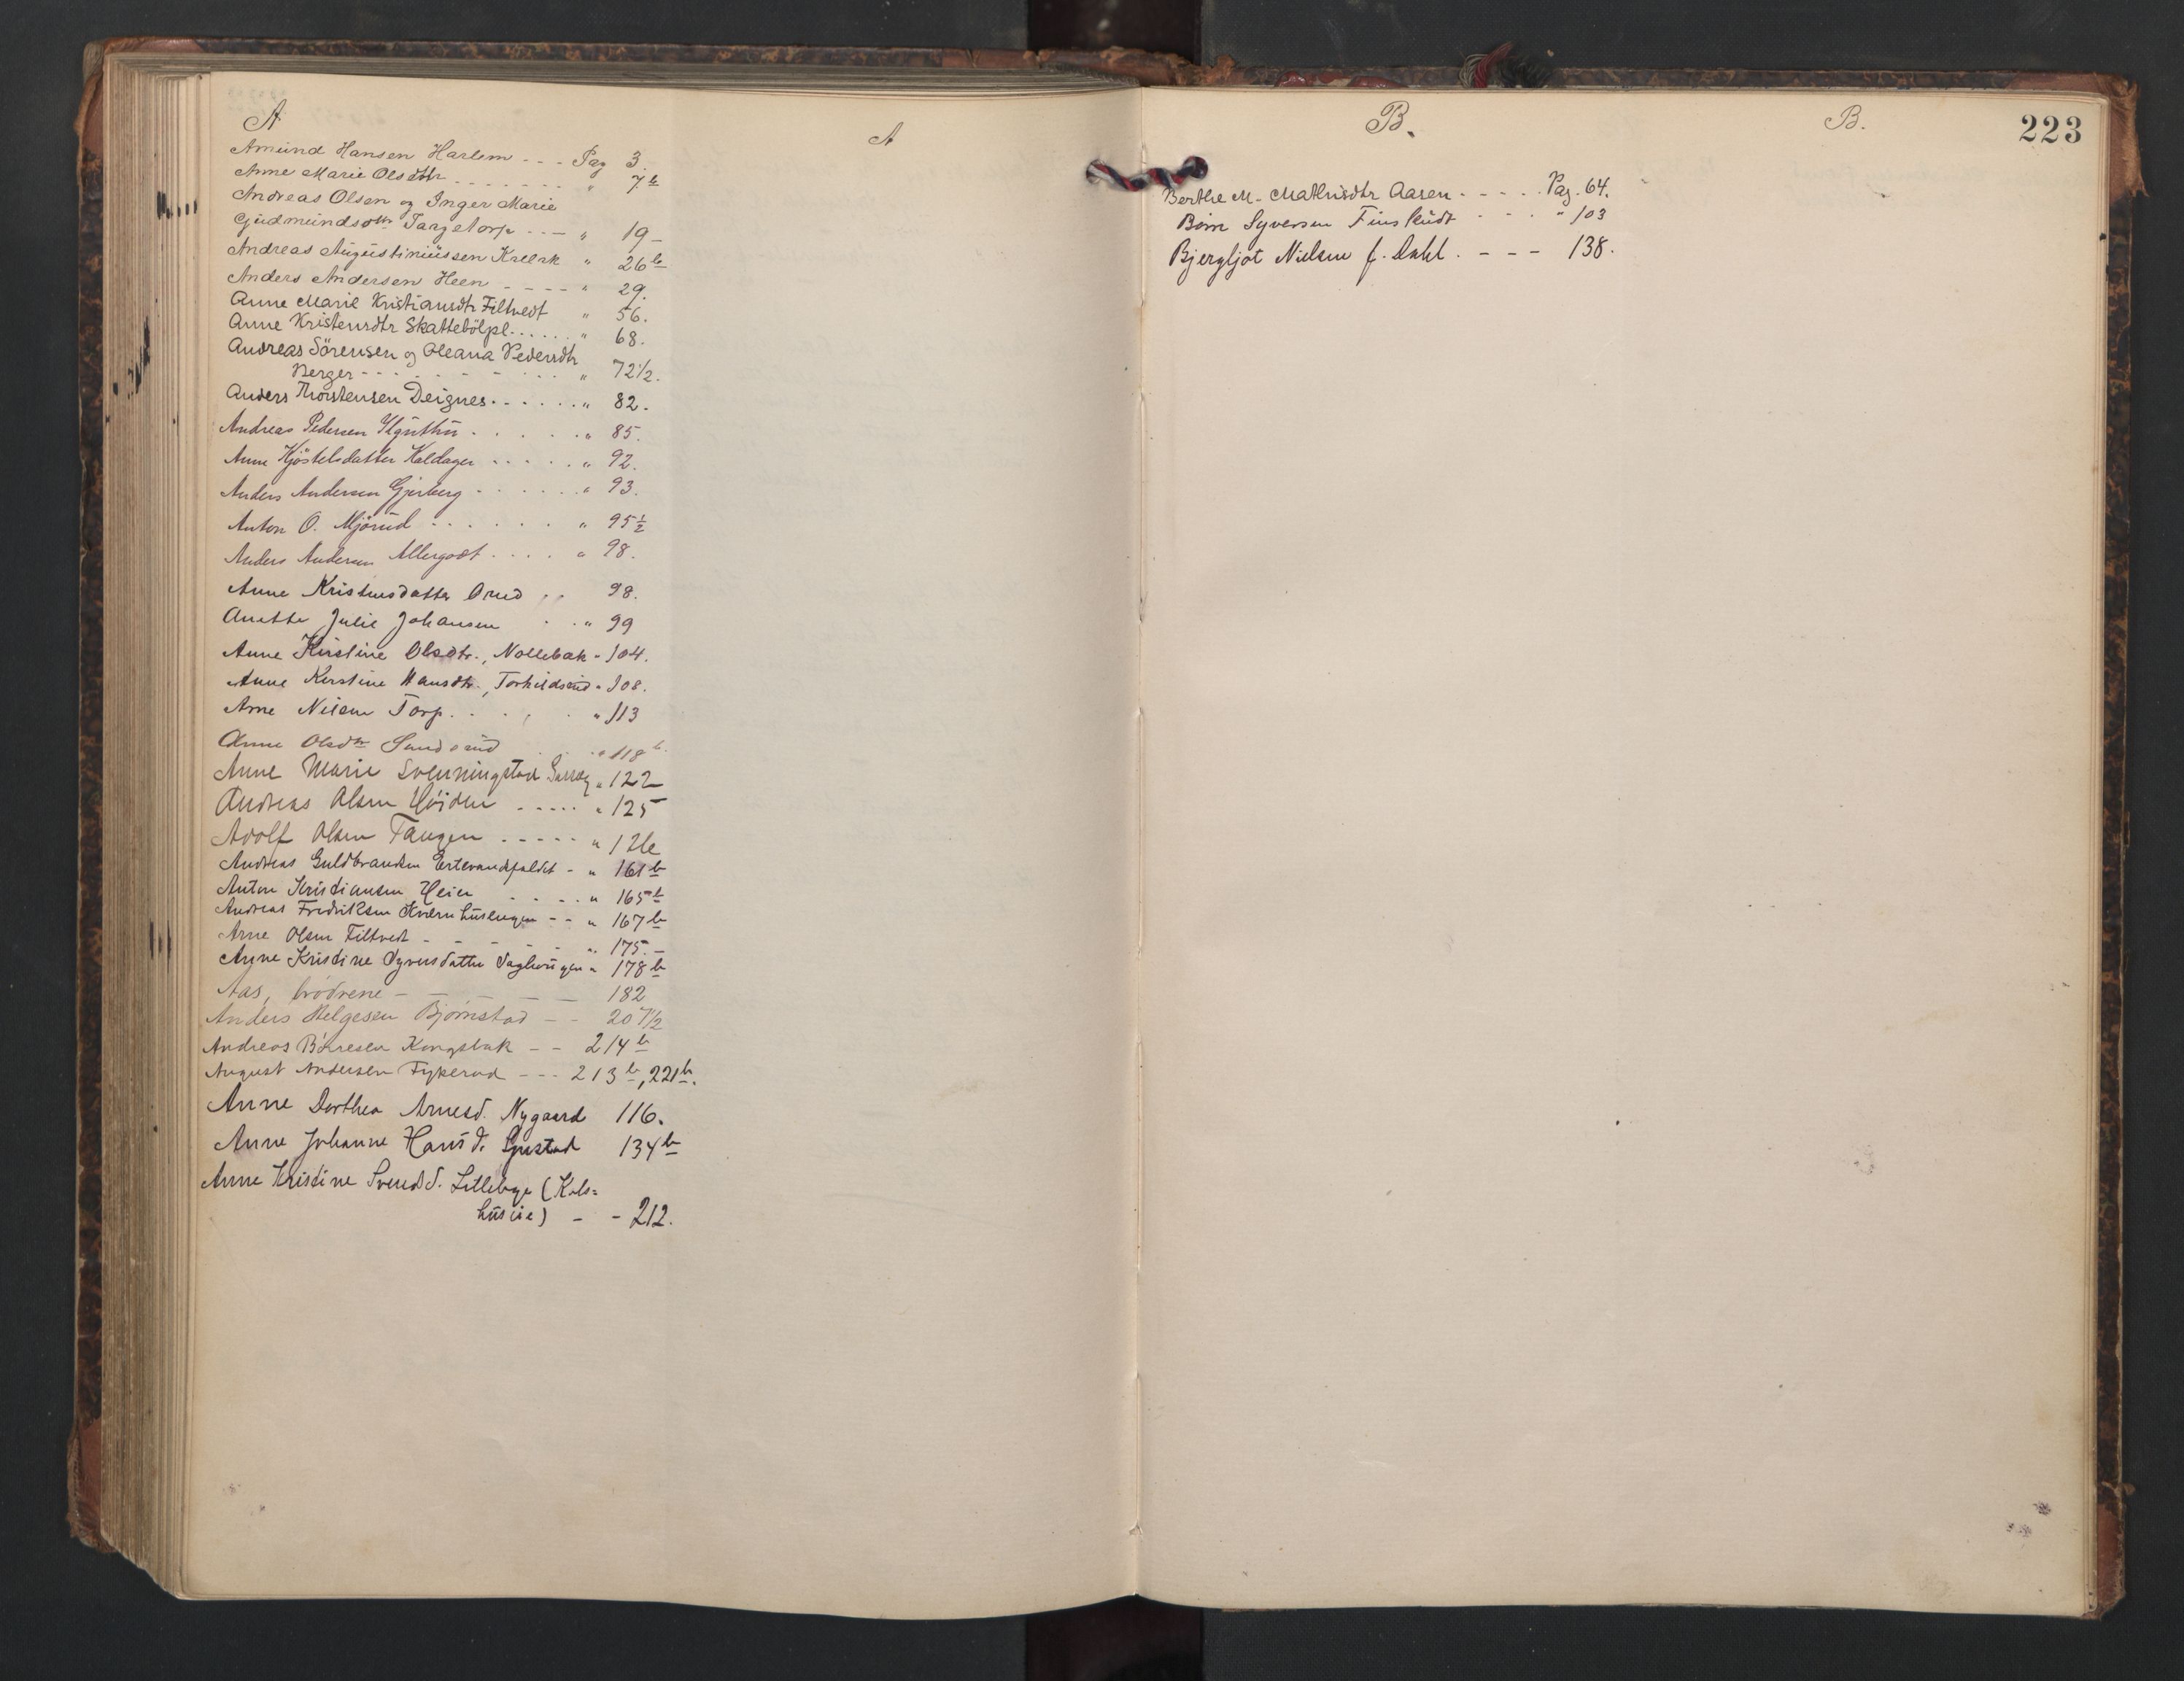 A
A
Amund Hansen Harlem - - - Pag 3.
Anne Marie Olsdttr . . . . . . . " 7 b
Andreas Olsen og Inger Marie
Gudmundsdttr Taagetorp - - - " 19 -
Andreas Augustiniussen Krerk " 26 b
Anders Andersen Heen - - - - " 29.
Anne Marie Kristiansdtr Filtvedt " 56.
Anne Kristensdtr Skattebölpl . . . . . " 68.
Andreas Sörensen og Oleana Pedersdtr
Berger - - - - - - . . . " 72 1/2.
Anders Thorstensen Deignes . . . . . . " 82.
Andreas Pedersen . . . . . " 85.
Anne Kjöstelsdatter Haldager . . . . . " 92.
Anders Andersen Gjerberg - . . . . . " 93.
Anton O. Mjörud - . . . . . " 95 1/2
Anders Andersen Allergodt . . . . " 98.
Anne Kristensdatter Orud . . 98.
Anette Julie Johansen . . " 99
Anne Kirstine Olsdtr., Nollebæk - 104.
Anne Kirstine Hansdtr., Torhildsrud " 108.
Arne Nilsen Torp . . . . . " 113
Anne Olsdtr Sandsrud . . . " 118 b.
Anne Marie Svenningstad " 122
Andreas Olsen Høiden - - - - - " 125
Adolf Olsen Tangen - - - - - " 126
Andreas Guldbrandsen Ertevandspladst - " 161 b
Anton Kristiansen Heier . . . . " 165 b
Andreas Fredriksen Kvernhuseugen - - " 167 b
Arne Olsen Filtvedt - - - - - - " 175. -
Anne Kristine Syversdatter Saghaugen " 178 b
Aas, brödrene - - - - - 182
Anders Helgesen Bjørnstad - - 207 1/2
Andreas Börresen Kongsbak - - 214 b
August Andersen Fykerud - - - 213 b, 221 b.
Anne Dorthea Arnesd. Nygaard 116.
Anne Johanne Hansd. Gjustad 134 b
Anne Kristine Svendsd. Lillebye (Kols=
huseie) - - 212.
B.
B.
223
Berthe M. Mathisdtr Aasen - - - - - Pag. 64.
Børn Syversen Finsrudt - - - . " 103
Bjergljot Nielsen f. Dahl . - - - 138.